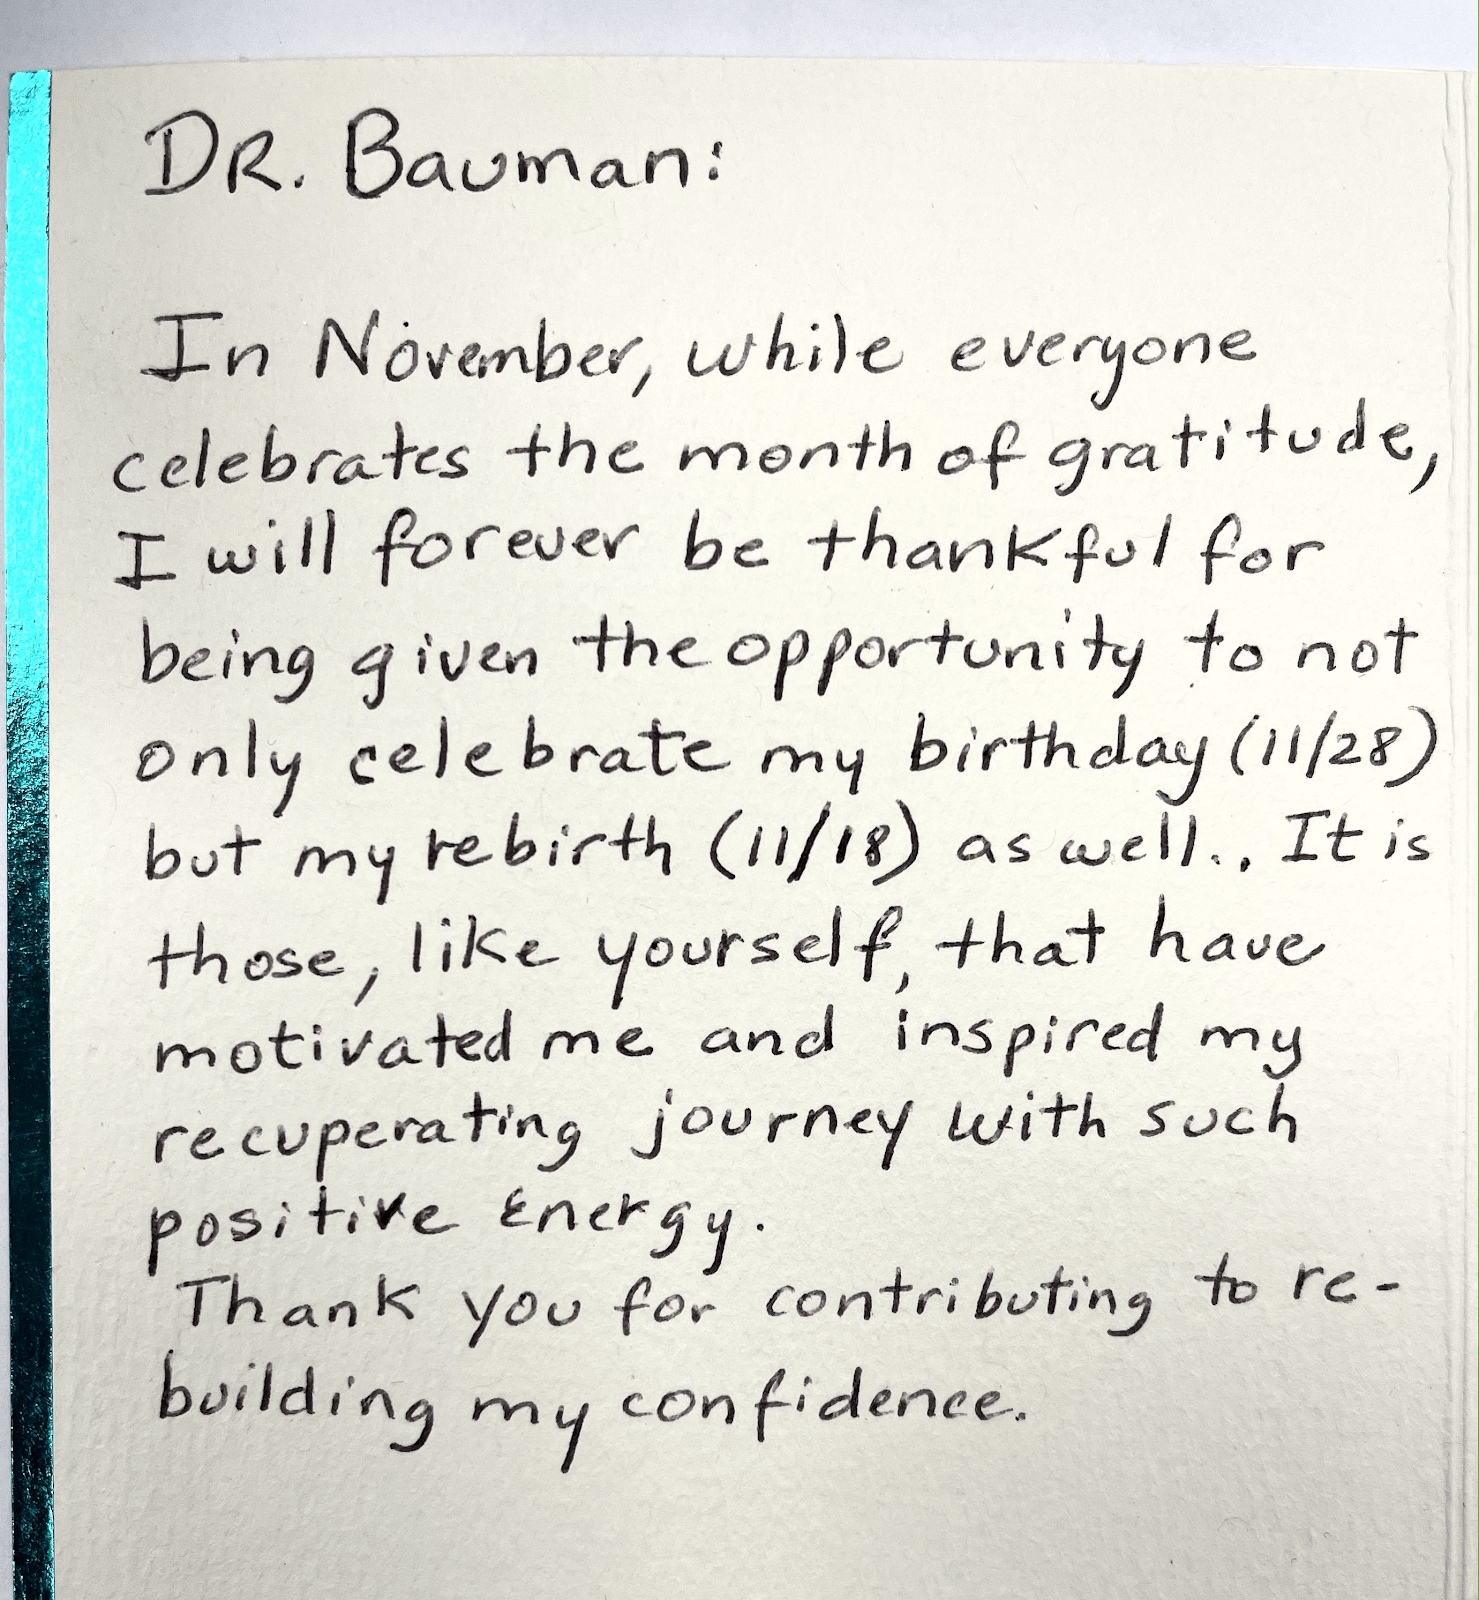 DR. Bauman:
In November, while everyone
celebrates the month of gratitude,
I will forever be thankful for
being given the opportunity to not
only celebrate my birthday (11/28)
but my rebirth (11/18) as well.. It is
those, like yourself, that have
motivated me and inspired my
recuperating journey with such
positive Energy.
Thank you for contributing to re-
building my confidence.